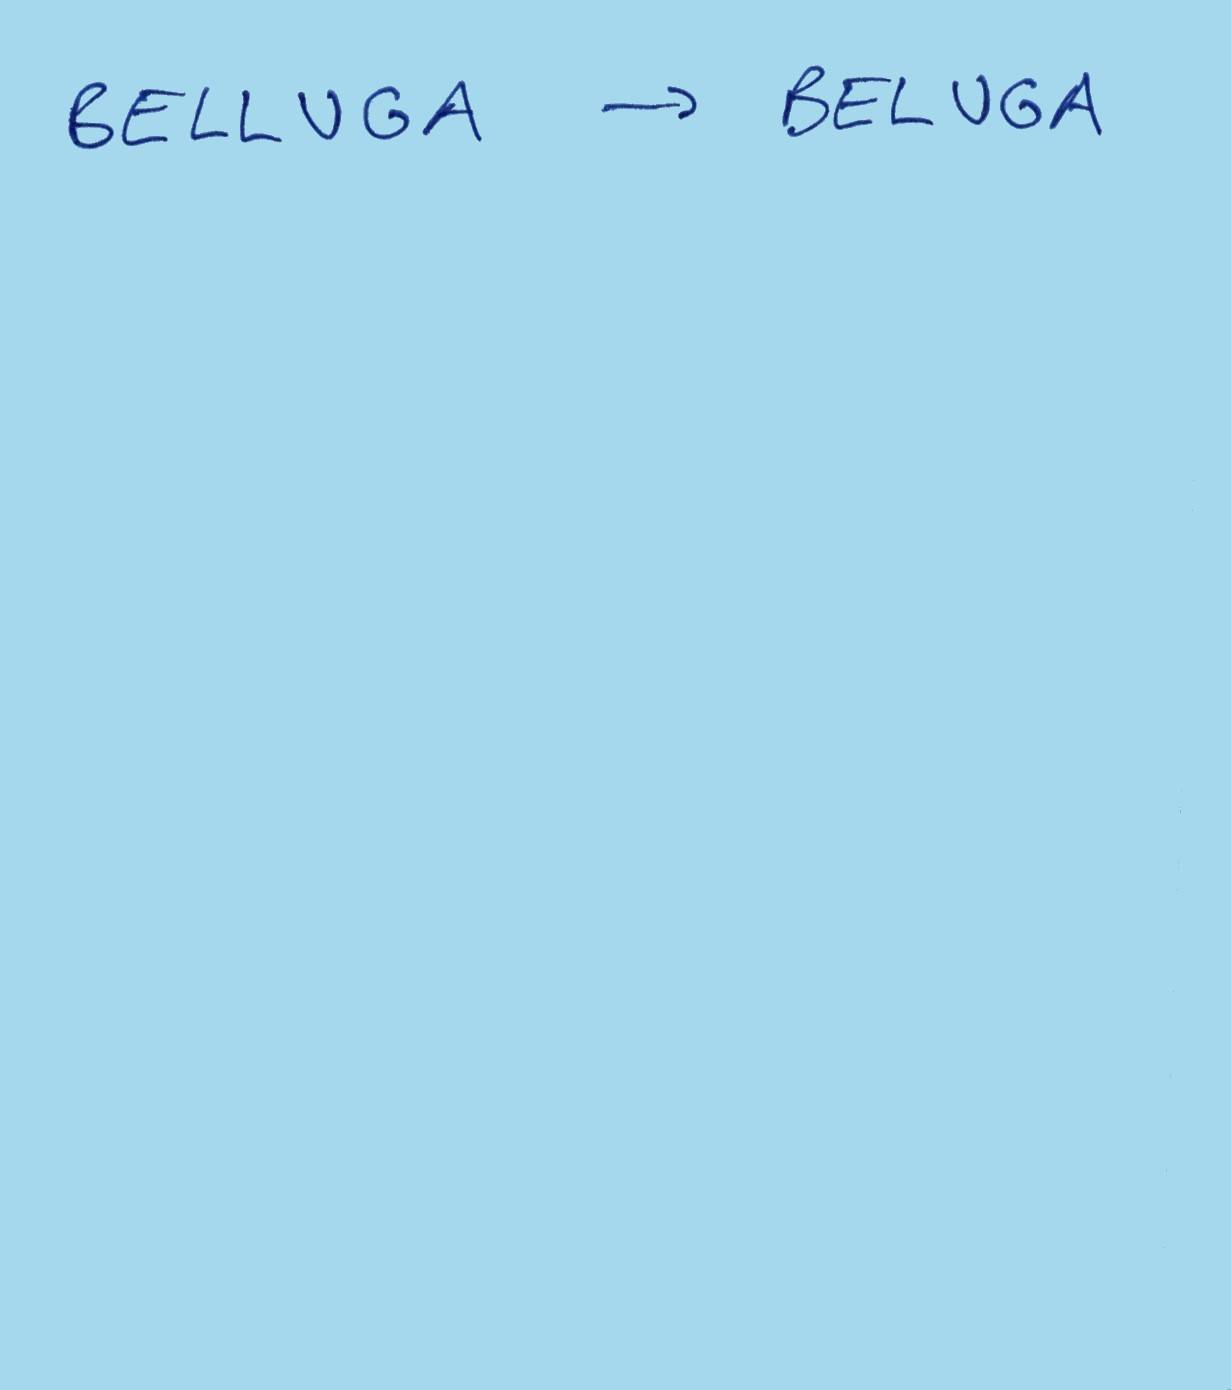 BELLUGA → BELUGA